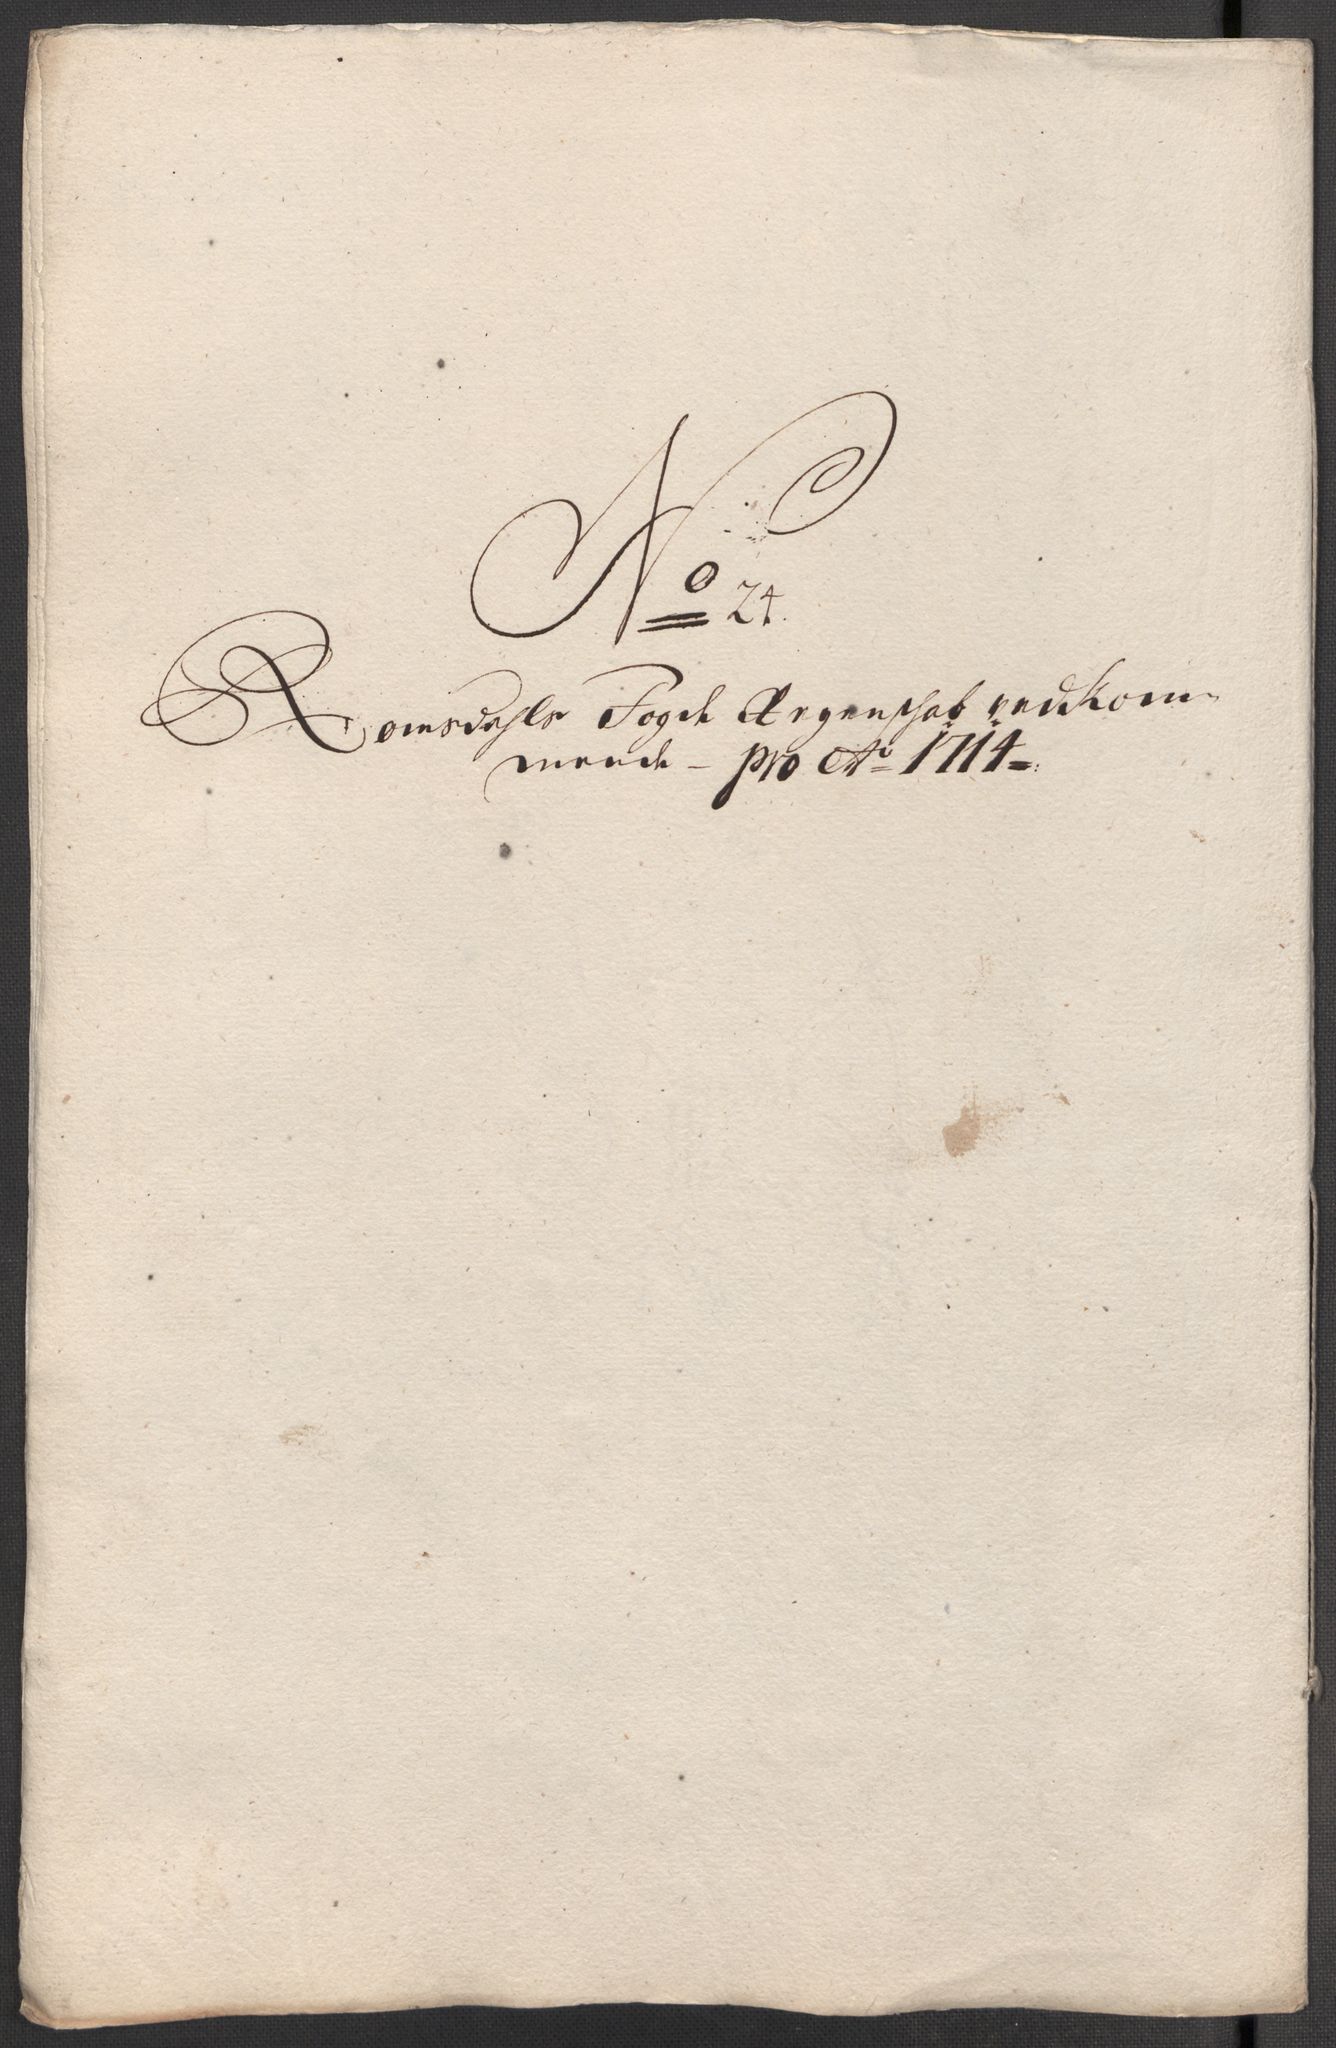 No 24.
Romsdahls Fogd Regenskab vedkom-
mende - pro Ao 1714